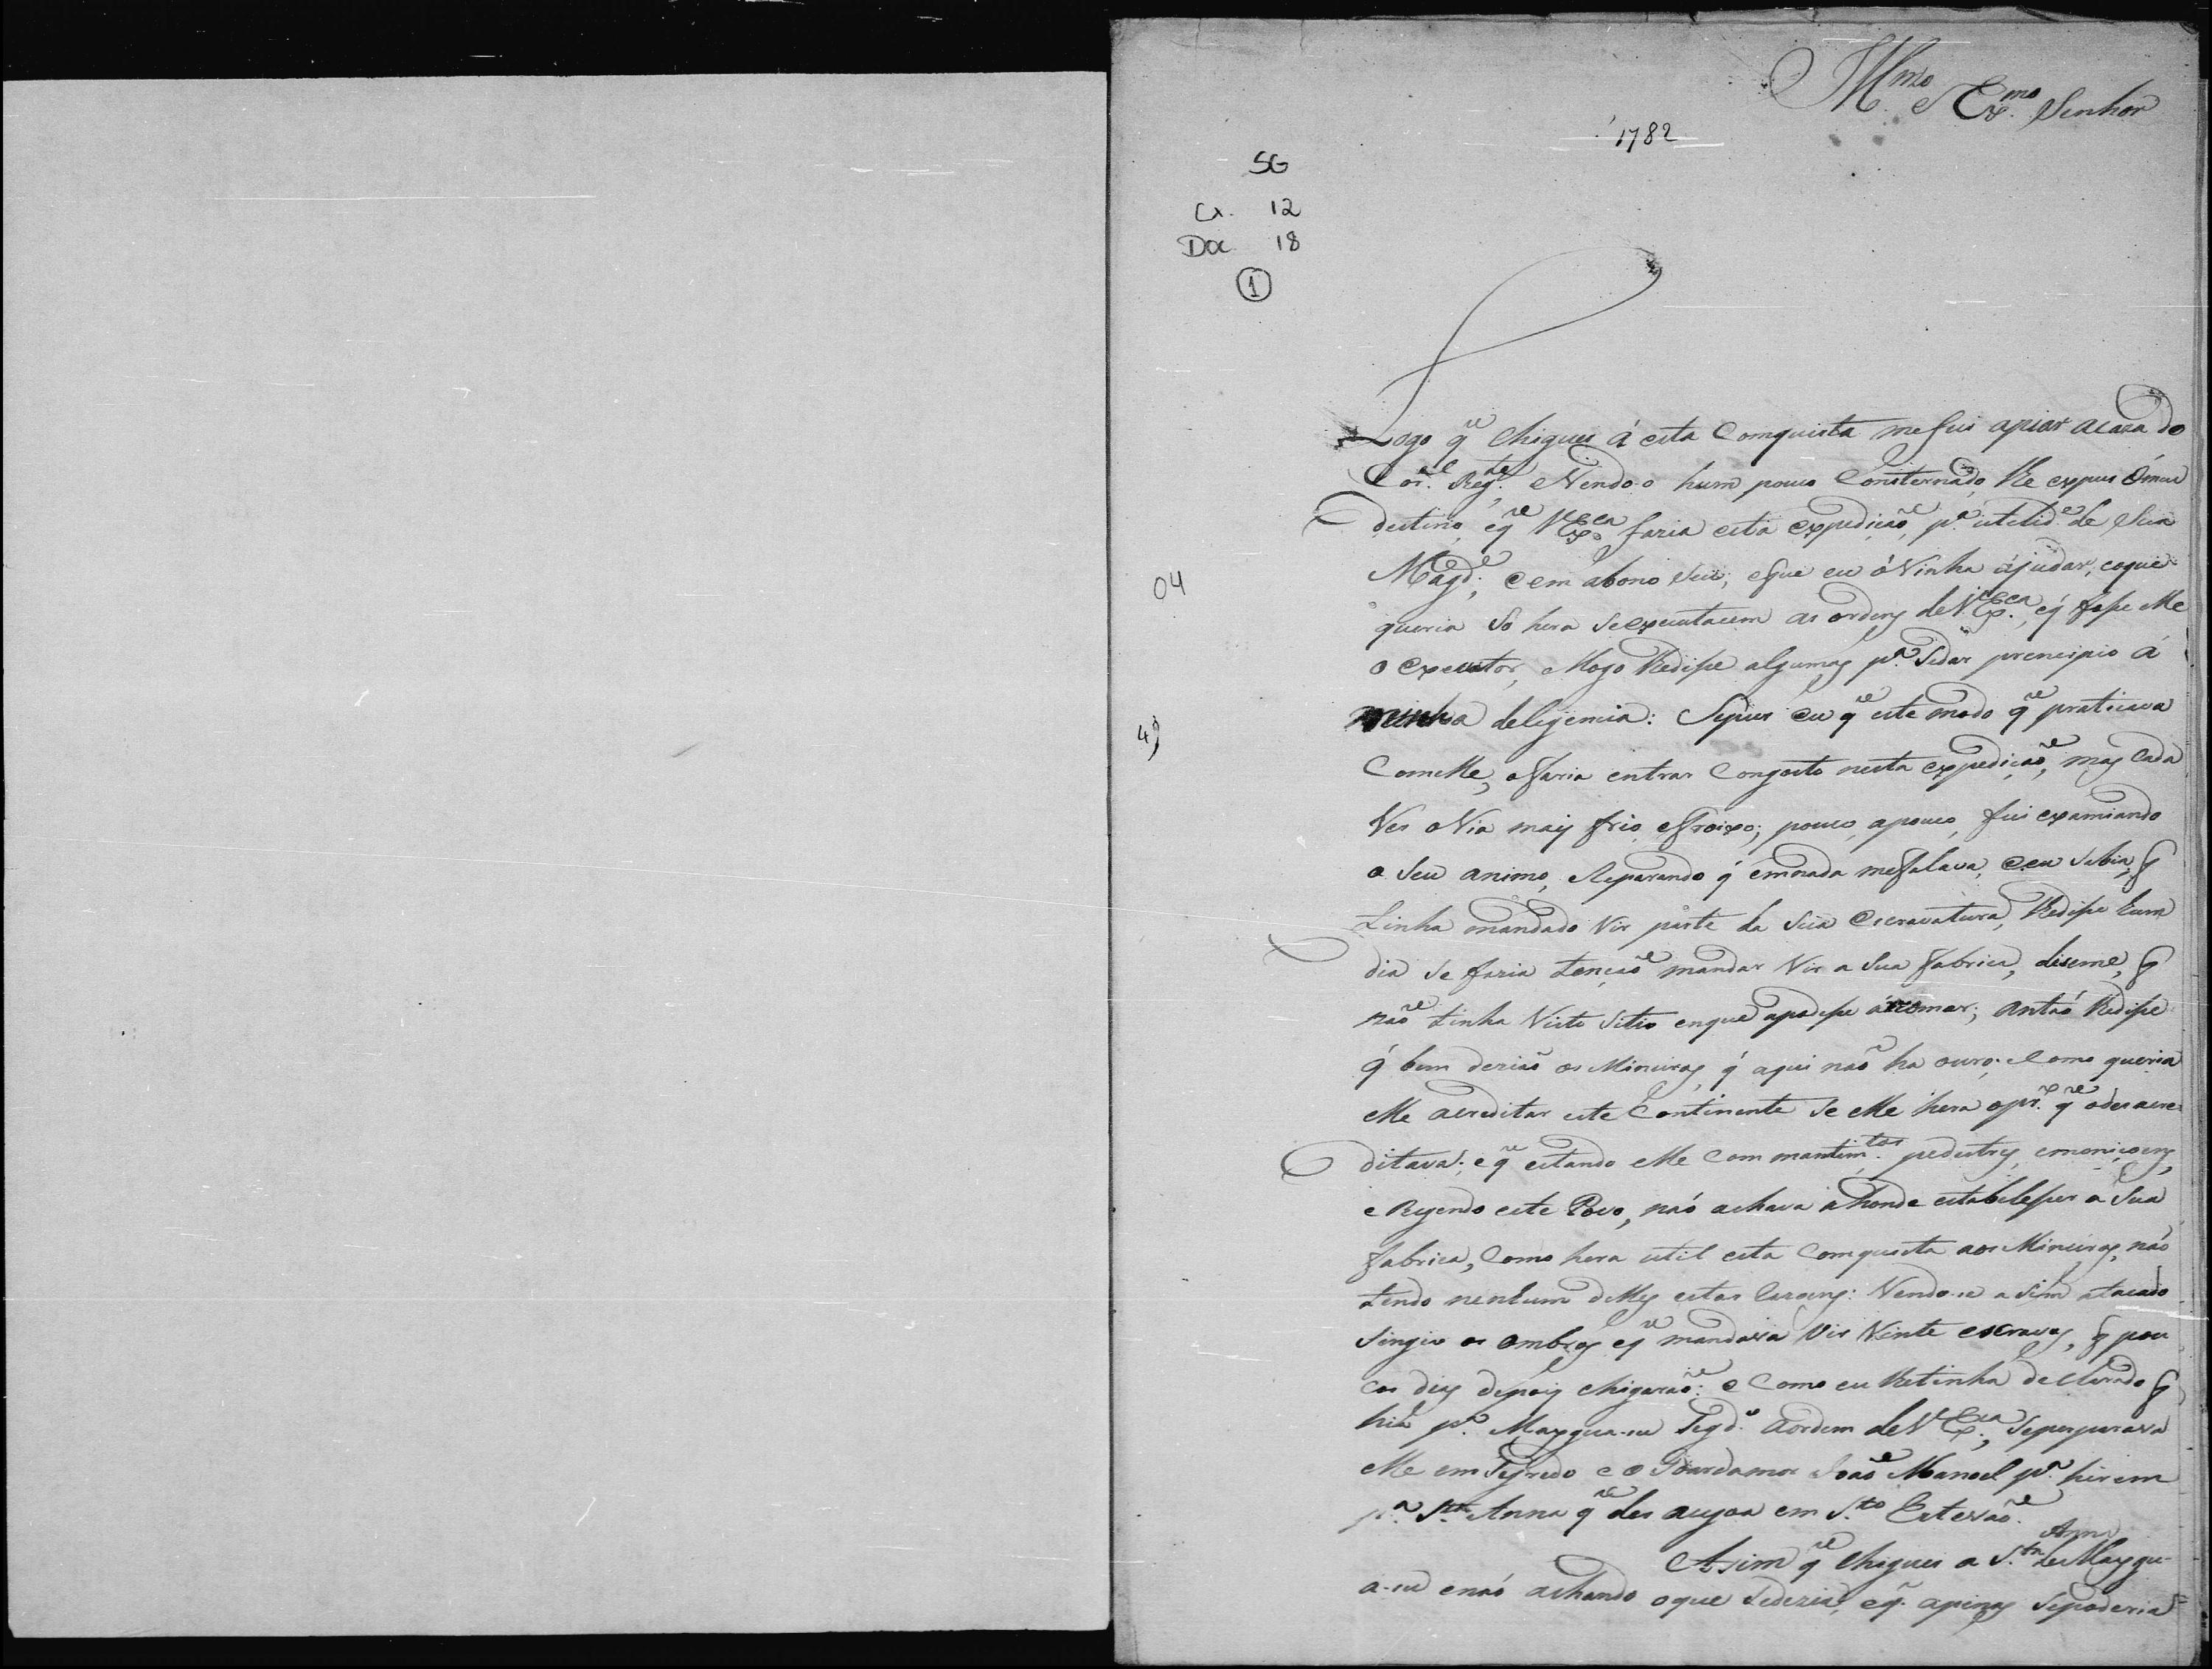 Illmo e Exmo Senhor
1782
SG
Cx. 12
Doc 18
1
04
49
Logo q̃ chiguei á esta Comquista me fui apiar a caza do
Cor.el Reg.te, e Vendo-o hum pouco Consternado, lhe expus ó meu
destino, eq̃ V.Ex.ca fazia esta expediçaõ, p.a utelid.e de Sua
Magd.e, e em abono seu, e que eu ó Vinha ájudar, e o que
queria so hera se executacem as ordens de V.Ex.ca, e q̃ fose elle
o executor, e logo lhe dise algumas p.a se dar prencipio á
minha deligencia: Supus eu q̃ este modo q̃ praticava
Com elle, o faria entrar Com gosto nesta expediçaõ, mas Cada
Ves o Via mais frio, e froixo; pouco, a pouco, fui examiando
o seu animo, e Reparando q̃ em nada me falava, e eu sabia, q̃
tinha mandado Vir parte da sua Escravatura, lhe dise hum
dia se fazia tençaõ mandar Vir a sua fabrica, diseme, q̃
naõ tinha Visto sitio em que a podese arumar; antaõ lhe dise
q̃ bem deziaõ os Mineiros, q̃ aqui naõ ha ouro: e Como queria
elle acreditar este Continente se elle hera o pr.o q̃ o desacre-
ditava; e q̃ estando elle Com mantim.tos pedestres, e moniçoens,
e Regendo este Povo, naõ achava a honde estabeleser a sua
fabrica, Como hera util esta Comquista aos Mineiros, naõ
tendo nenhum delles estas larguezas: Vendo-se a sim atacado
singio os ombros e q̃ mandava Vir Vinte escravos, q̃ pou
cos dias depois chigaraõ: e Como eu lhe tinha declarado q̃
hia p.a Maxgua-su Segd.o a ordem de V.Ex.ca, se perparava
elle em Segredo e o Goardamor Joaõ Manoel p.a hirem
p.a S.ta Anna q̃ des agoa em S.to Estevaõ.
Asim q̃ chiguei a S.ta Anna de Maxgu-
a-su e naõ achando o que se dezia, e q̃ apinas se poderia